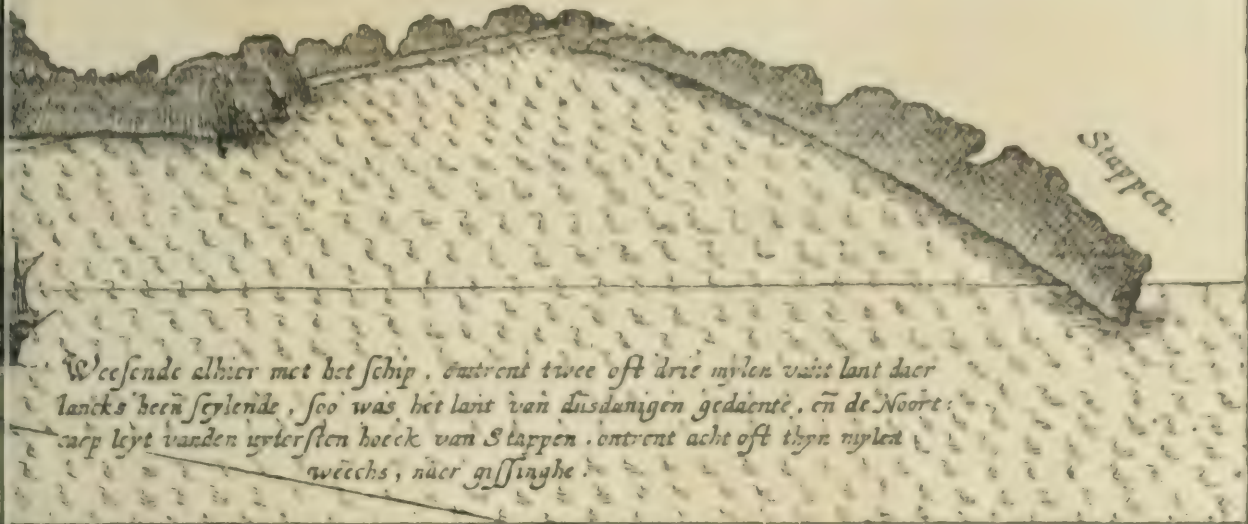 Stappen.
Weesende alhier met het schip, omtrent twee oft drie mylen vant lant daer
lancks heen seylende, soo was het lant van dusdanigen gedaente, en̄ de Noort:
caep leyt vanden uytersten hoeck van Stappen, ontrent acht oft thyn mylen
weechs, naer gissinghe.